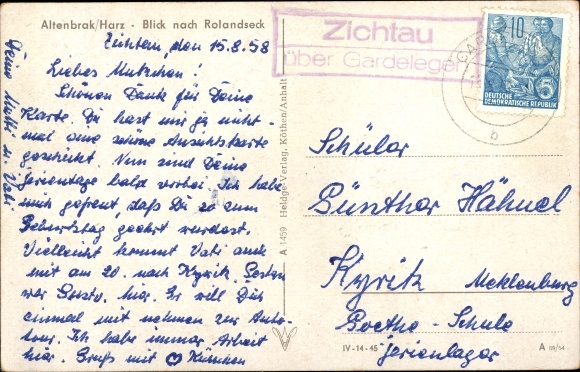 Altenbrak/Harz · Blick nach Rolandseck
Zichtau, den 15.8.58
Liebes Mutzchen!
Schönen Dank für Deine
Karte. Du hast mir ja
mal eine schöne Ansichtskarte
geschickt. Nun sind Deine
Ferientage bald vorbei. Ich habe
mich gefreut, daß Du so zum
Geburtstag geehrt wurdest.
Vielleicht kommt Vati auch
mit am 20. nach Kyritz. Gestern
war hier. Er will Dich
einmal mit nehmen zur Auto-
tour. Ich habe immer Arbeit
hier. Gruß mit
Deine Mutti u. Vati
A 1459 Heldge-Verlag, Köthen/Anhalt
Zichtau
über Gardelegen
10
5
DEUTSCHE
DEMOKRATISCHE REPUBLIK
b
Schüler
Günther Hähnel
Kyritz Mecklenburg
Goethe-Schule
Ferienlager
IV-14-45
A